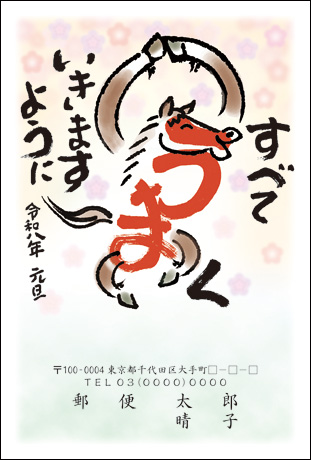 すべて
うまく
いきます
ように
令和八年 元旦
〒100-0004 東京都千代田区大手町□−□−□
TEL 03(0000)0000
郵便 太郎
晴子